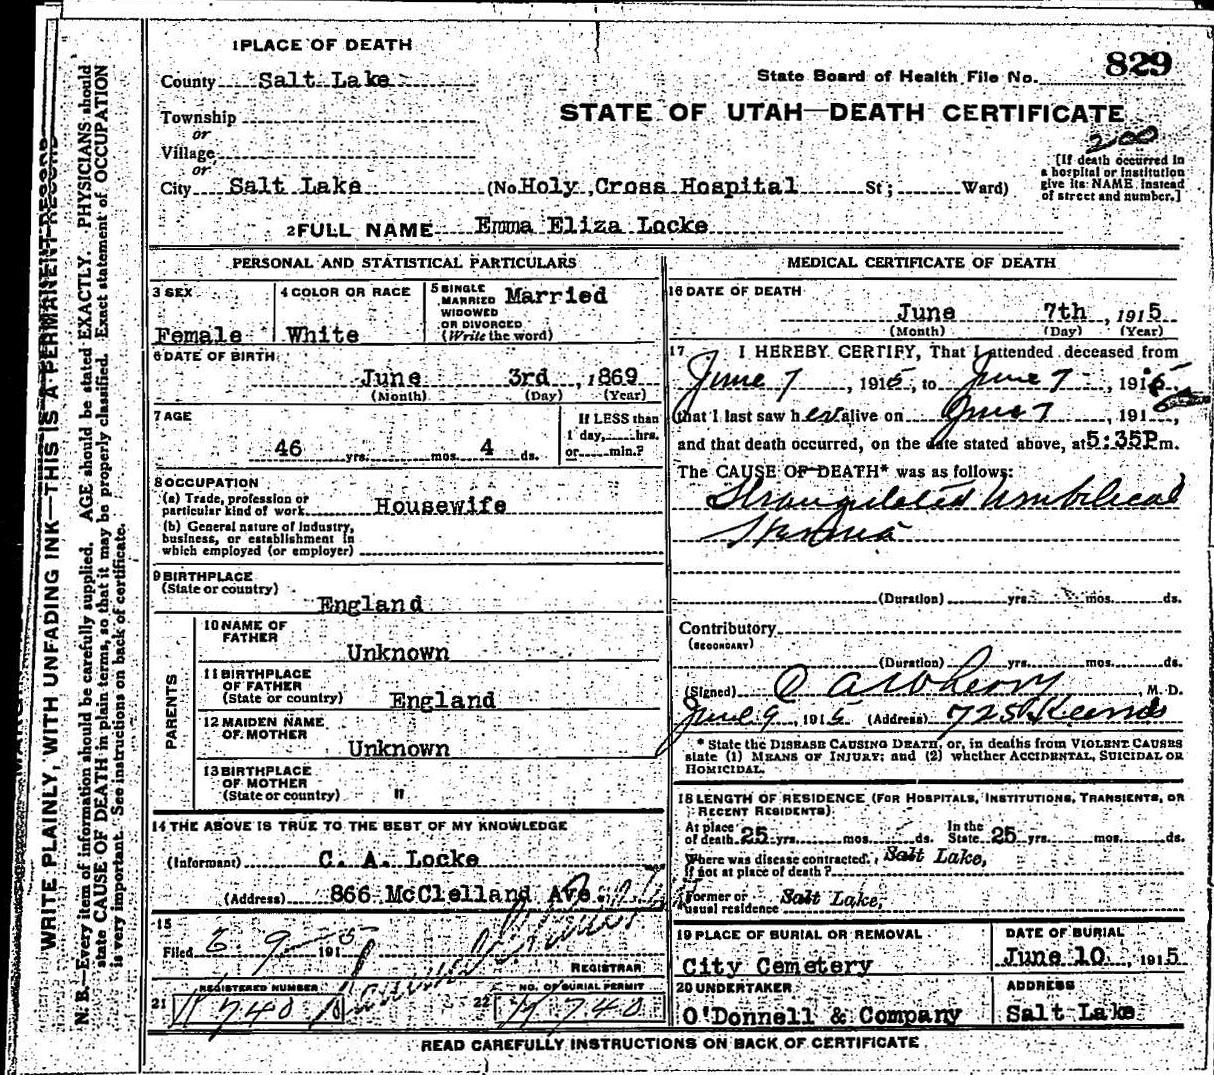 1 PLACE OF DEATH
County Salt Lake
State Board of Health File No. 829
Township
or
Village
or
STATE OF UTAH—DEATH CERTIFICATE
200
City Salt Lake (No. Holy Cross Hospital St; Ward)
[If death occurred in
a hospital or institution
give its NAME instead
of street and number.]
2 FULL NAME Emma Eliza Locke
PERSONAL AND STATISTICAL PARTICULARS
3 SEX
Female
4 COLOR OR RACE
White
5 SINGLE
MARRIED
WIDOWED
OR DIVORCED
(Write the word)
Married
6 DATE OF BIRTH
June 3rd , 1869
(Month) (Day) (Year)
7 AGE
46 yrs. mos. 4 ds.
If LESS than
1 day, hrs.
or min.?
8 OCCUPATION
(a) Trade, profession or
particular kind of work Housewife
(b) General nature of industry,
business, or establishment in
which employed (or employer)
9 BIRTHPLACE
(State or country)
England
PARENTS
10 NAME OF
FATHER
Unknown
11 BIRTHPLACE
OF FATHER
(State or country) England
12 MAIDEN NAME
OF MOTHER
Unknown
13 BIRTHPLACE
OF MOTHER
(State or country) "
14 THE ABOVE IS TRUE TO THE BEST OF MY KNOWLEDGE
(Informant) C. A. Locke
(Address) 866 McClelland Ave.
15
Filed 6 9 1915
REGISTRAR
REGISTERED NUMBER
21 740
NO. OF BURIAL PERMIT
22 740
MEDICAL CERTIFICATE OF DEATH
16 DATE OF DEATH
June 7th , 1915
(Month) (Day) (Year)
17 I HEREBY CERTIFY, That I attended deceased from
June 7 , 1915, to June 7 , 1915
that I last saw her alive on June 7 , 191 ,
and that death occurred, on the date stated above, at 5:35P m.
The CAUSE OF DEATH* was as follows:
Strangulated Umbilical
Hernia
(Duration) yrs. mos. ds.
Contributory
(SECONDARY)
(Duration) yrs. mos. ds.
(Signed) , M. D.
June 9, 1915 (Address) 725 Kearns
* State the DISEASE CAUSING DEATH, or, in deaths from VIOLENT CAUSES
state (1) MEANS OF INJURY; and (2) whether ACCIDENTAL, SUICIDAL OR
HOMICIDAL.
18 LENGTH OF RESIDENCE (FOR HOSPITALS, INSTITUTIONS, TRANSIENTS, OR
RECENT RESIDENTS)
At place
of death 25 yrs. mos. ds. In the
State 25 yrs. mos. ds.
Where was disease contracted, Salt Lake,
if not at place of death?
Former or
usual residence Salt Lake,
19 PLACE OF BURIAL OR REMOVAL
City Cemetery
DATE OF BURIAL
June 10 , 1915
20 UNDERTAKER
O'Donnell & Company
ADDRESS
Salt Lake
READ CAREFULLY INSTRUCTIONS ON BACK OF CERTIFICATE
WRITE PLAINLY, WITH UNFADING INK—THIS IS A PERMANENT RECORD
N. B.—Every item of information should be carefully supplied. AGE should be stated EXACTLY. PHYSICIANS should
state CAUSE OF DEATH in plain terms, so that it may be properly classified. Exact statement of OCCUPATION
is very important. See instructions on back of certificate.